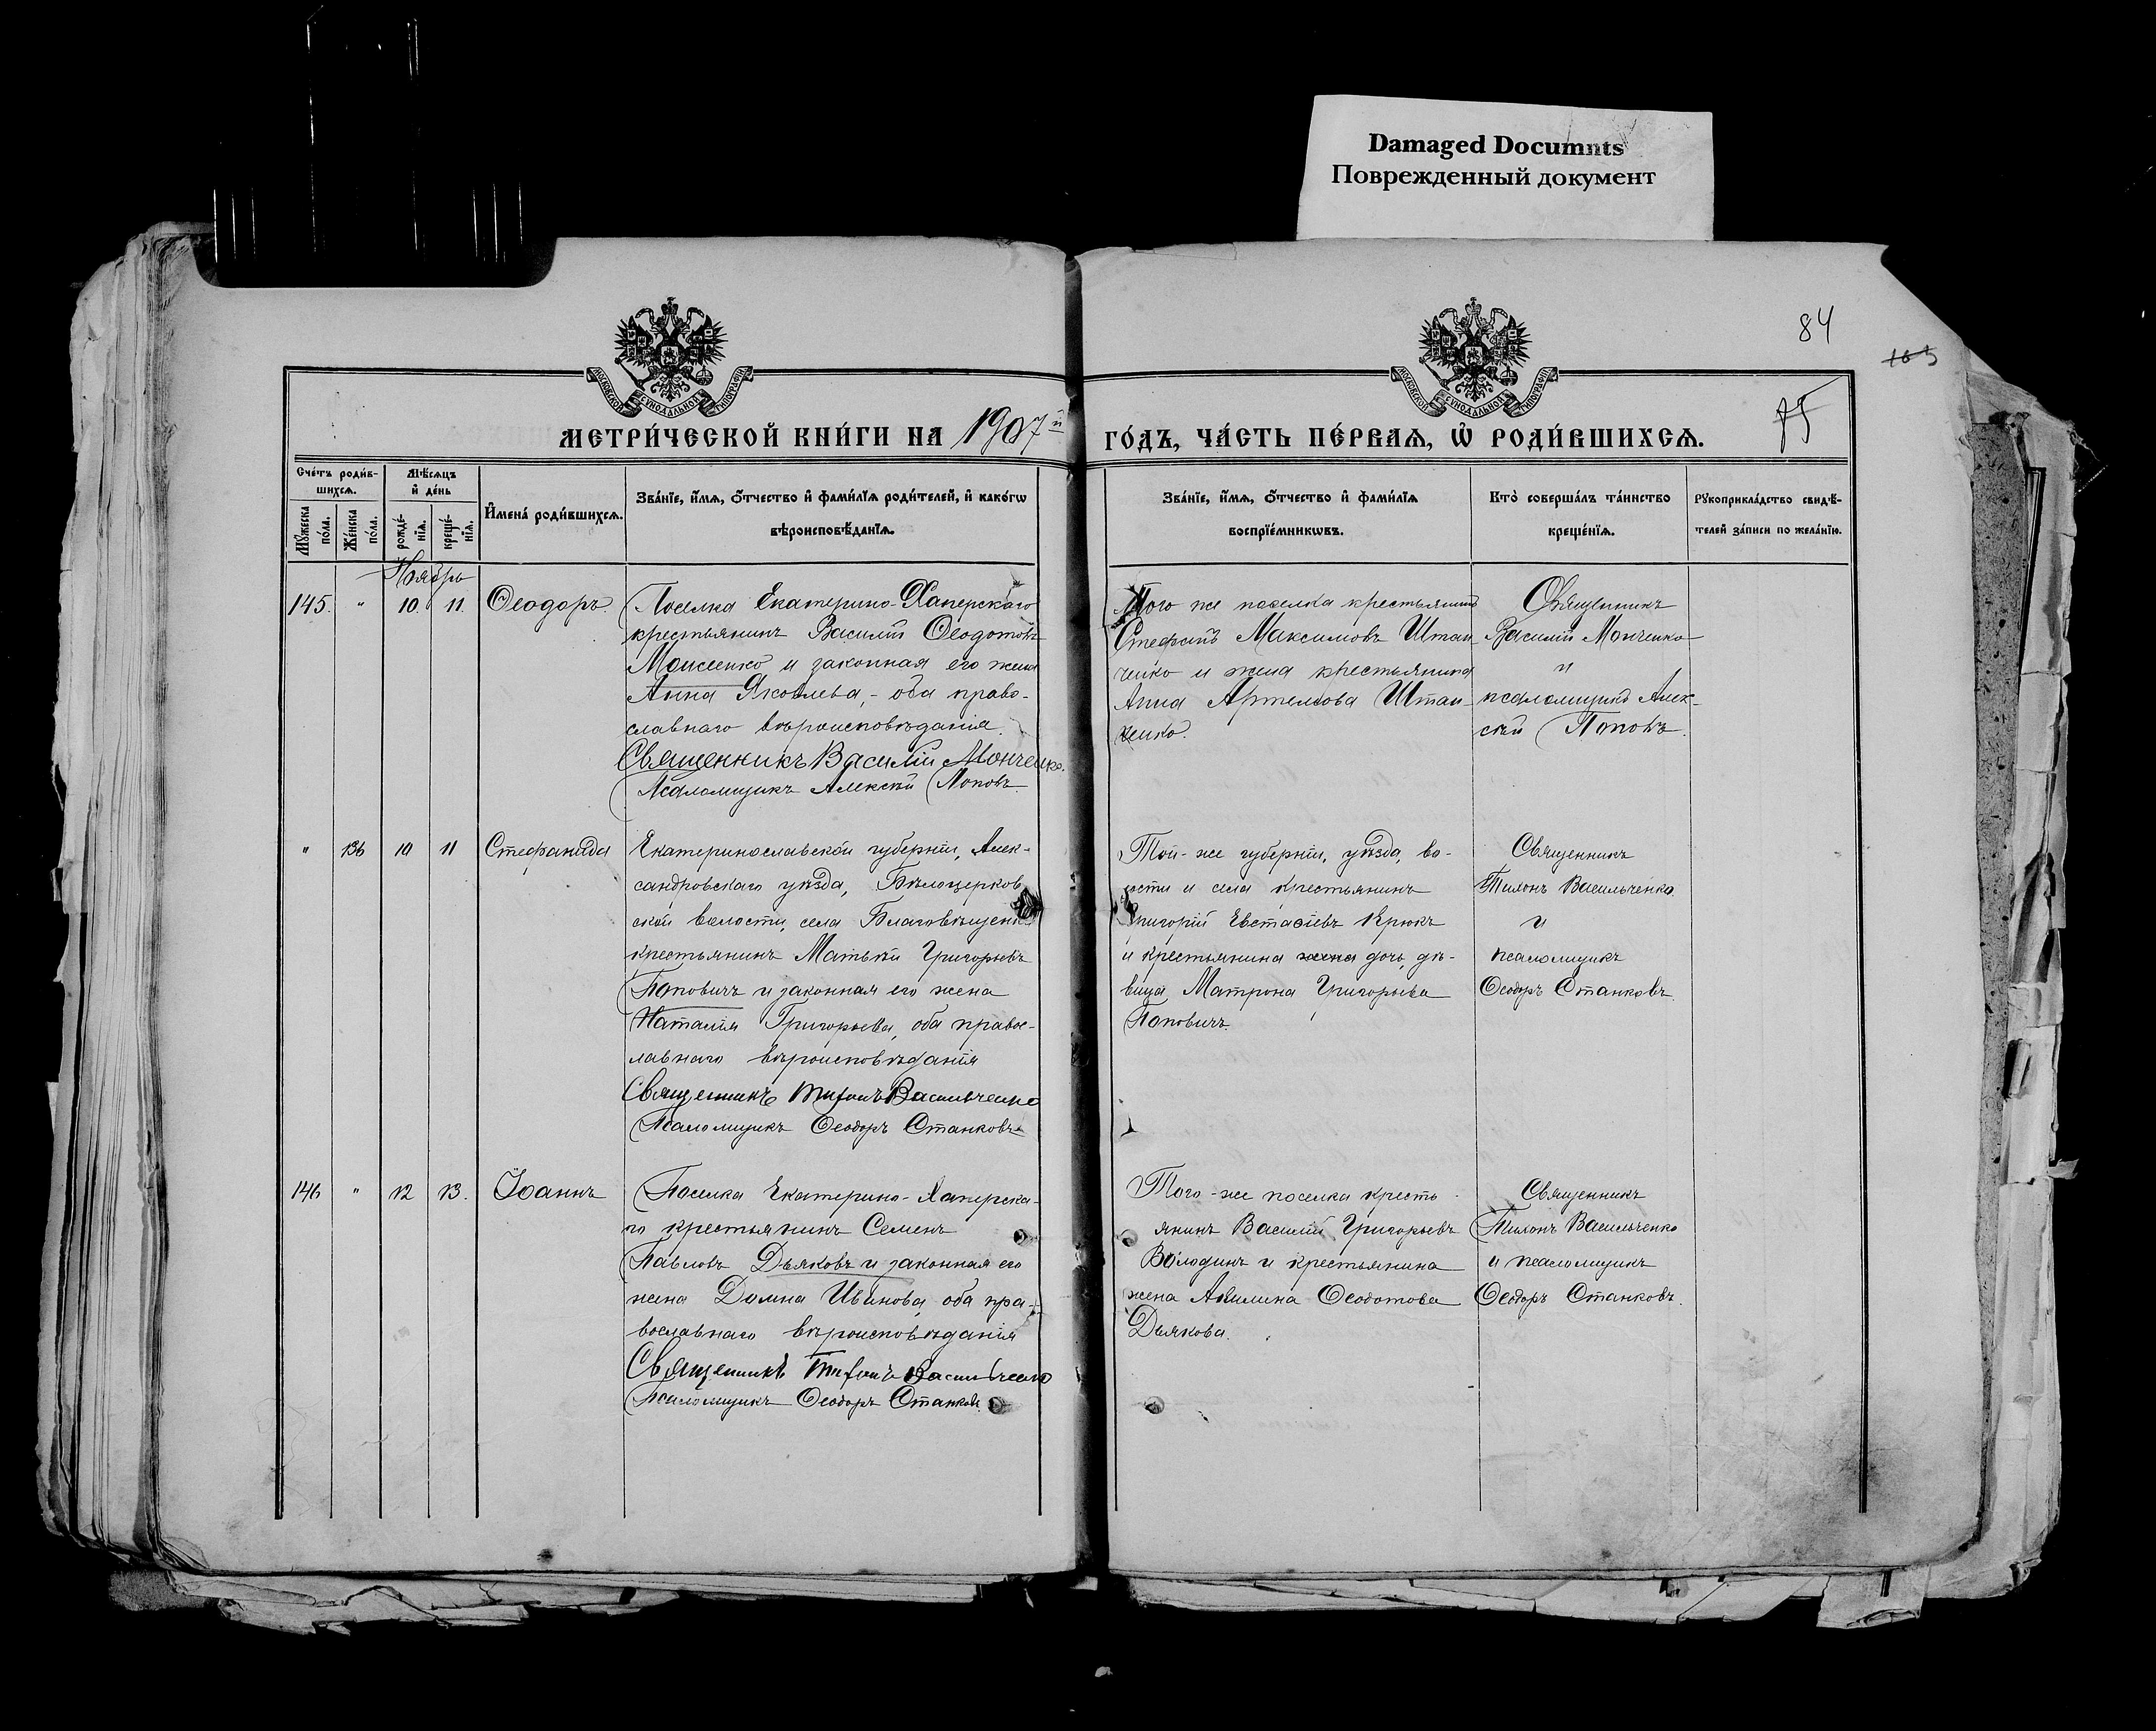 Damaged Documnts
Поврежденный документ
84
103
85
МОСКОВСКОЙ СѴНОДАЛЬНОЙ ТИПОГРАФІИ
МОСКОВСКОЙ СѴНОДАЛЬНОЙ ТИПОГРАФІИ
МЕТРИ́ЧЕСКОЙ КНИ́ГИ НА 1907й
ГО́ДЪ, ЧА́СТЬ ПЕ́РВАѦ, Ѿ РОДИ́ВШИХСѦ.
Сче́тъ роди́в-
шихсѧ.
Мꙋ́жеска по́ла.
Же́нска по́ла.
Мѣ́сѧцъ
и҆ де́нь
рожде́-
нїѧ.
креще́-
нїѧ.
И҆мена̀ роди́вшихсѧ.
Зва́нїе, и҆́мѧ, ѻ҆́тчество и҆ фами́лїѧ роди́телей, и҆ како́гѡ
вѣроисповѣ́данїѧ.
Зва́нїе, и҆́мѧ, ѻ҆́тчество и҆ фами́лїѧ
воспрїе́мникѡвъ.
Кто̀ соверша́лъ та́инство
креще́нїѧ.
Рꙋкоприкла́дство свидѣ́-
телей за́писи по жела́нїю.
Ноябрь
145. " 10. 11. Ѳеодоръ.
Поселка Екатерино-Хаперскаго
крестьянинъ Василій Ѳеодотовъ
Моисеенко и законная его жена
Анна Яковлева, - оба право-
славнаго вѣроисповѣданія.
Священникъ Василій Мончен­ко.
Псаломщикъ Алексѣй Поповъ.
Того же поселка крестьянинъ
Стефанъ Максимовъ Штан-
ченко и жена крестьянина
Анна Артемова Штан-
ченко.
Священникъ
Василій Монченко
и
псаломщикъ Алек-
сѣй Поповъ.
" 136 10 11 Стефанида
Екатеринославской губерніи, Алек-
сандровскаго уѣзда, Бѣлоцерков
ской волости, села Благовѣщенс
крестьянинъ Матѳѣй Григорьевъ
Поповичъ и законная его жена
Наталія Григорьева, оба правос-
лавнаго вѣроисповѣданія
Священникъ Тихонъ Васильченко
Псаломщикъ Ѳеодоръ Станковъ
Той-же губерніи, уѣзда, во-
лости и села крестьянинъ
Григорій Евстафіевъ Крюкъ
и крестьянина жена дочь, дѣ-
вица Матрона Григорьева
Поповичъ.
Священникъ
Тихонъ Васильченко
и
псаломщикъ
Ѳеодоръ Станковъ.
146 " 12 13. Іоаннъ
Поселка Екатерино-Хаперска-
го крестьянинъ Семенъ
Павловъ Дьяковъ и законная его
жена Домна Иванова, оба пра-
вославнаго вѣроисповѣданія
Священникъ Тихонъ Васильченко
Псаломщикъ Ѳеодоръ Станковъ
Того-же поселка кресть
янинъ Василій Григорьевъ
Володинъ и крестьянина
жена Акилина Ѳеодотова
Дьякова.
Священникъ
Тихонъ Васильченко
и псаломщикъ
Ѳеодоръ Станковъ.